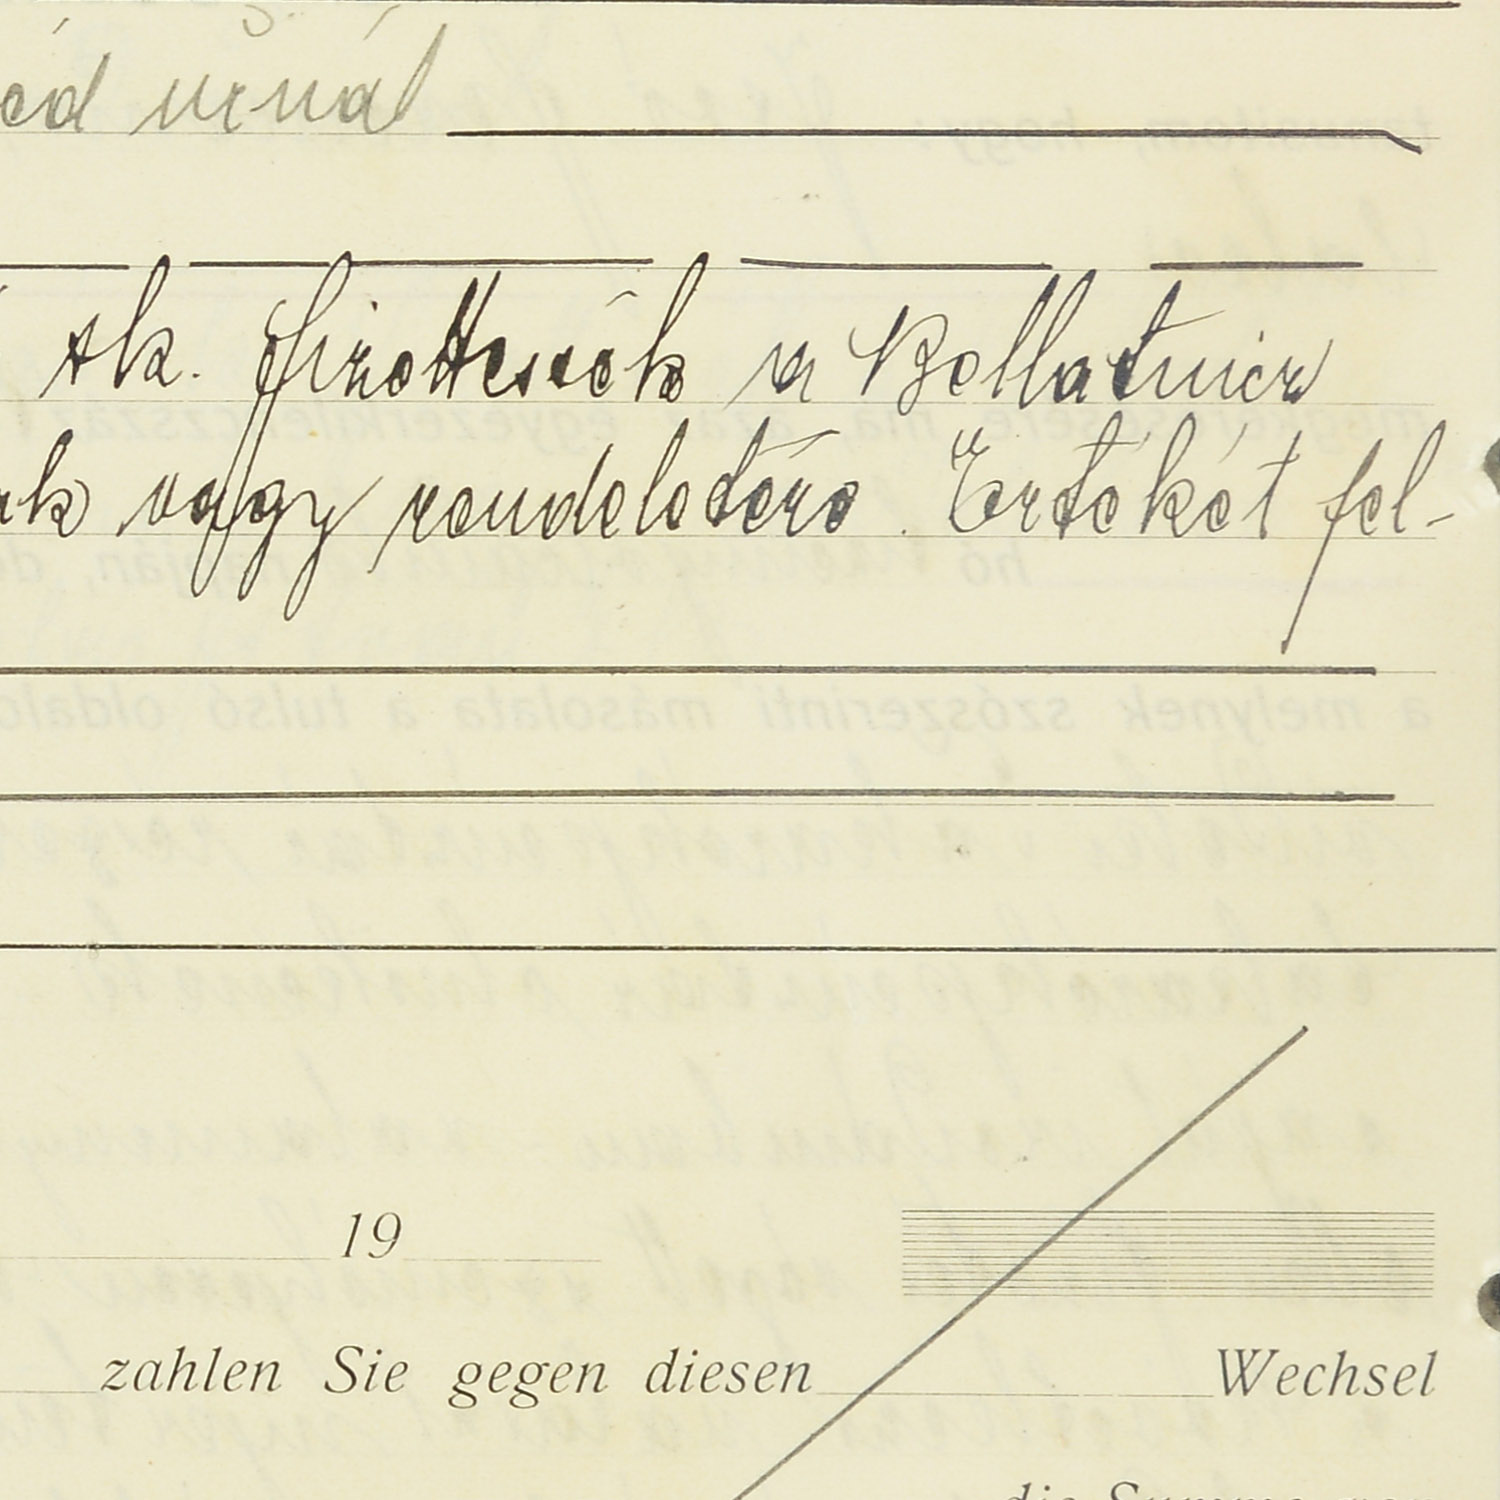 éd urnál
tk. fizettessék a Bellatincz
ak vagy rendeletére. Értékét fel-
19
zahlen Sie gegen diesen Wechsel
die Summe von